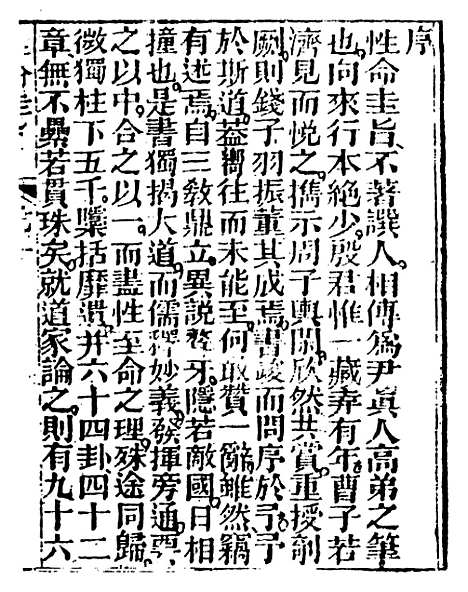 序
性命圭旨、不著譔人。相傳為尹真人高弟之筆
也。向來行本絶少。殷君惟一藏弆有年。曹子若
濟見而悅之。攜示周子輿閑。欣然共賞。重授剞
劂。則錢子羽振董其成焉。書竣而問序於予。予
於斯道。葢嚮往而未能至。何敢贊一辭。雖然竊
有述焉。自三敎鼎立。異說聱牙。隱若敵國。日相
撞也。是書獨揭大道。而儒釋妙義。發揮旁通。要
之以中。合之以一。而盡性至命之理。殊途同歸。
微獨柱下五千。檃括靡遺。并六十四卦。四十二
章。無不纍若貫珠矣。就道家論之。則有九十六